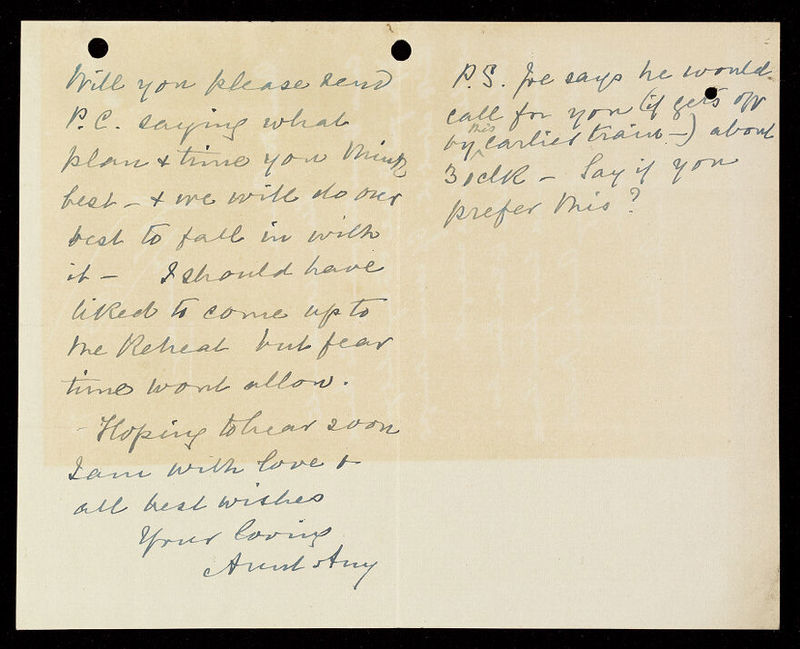 Will you please send
P.C. saying what
plan & time you think
best - & we will do our
best to fall in with
it - I should have
liked to come up to
the Retreat but fear
time wont allow.
- Hoping to hear soon
I am with love &
all best wishes
Your loving
Aunt Amy
P.S. Joe says he would
call for you (if gets off
by this earlier train -) about
3 oclk - Say if you
prefer this?